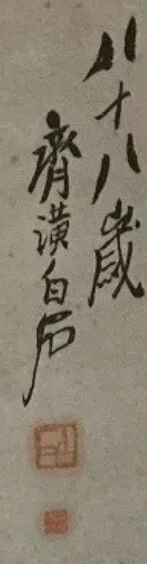 八十八歲
齊璜白石